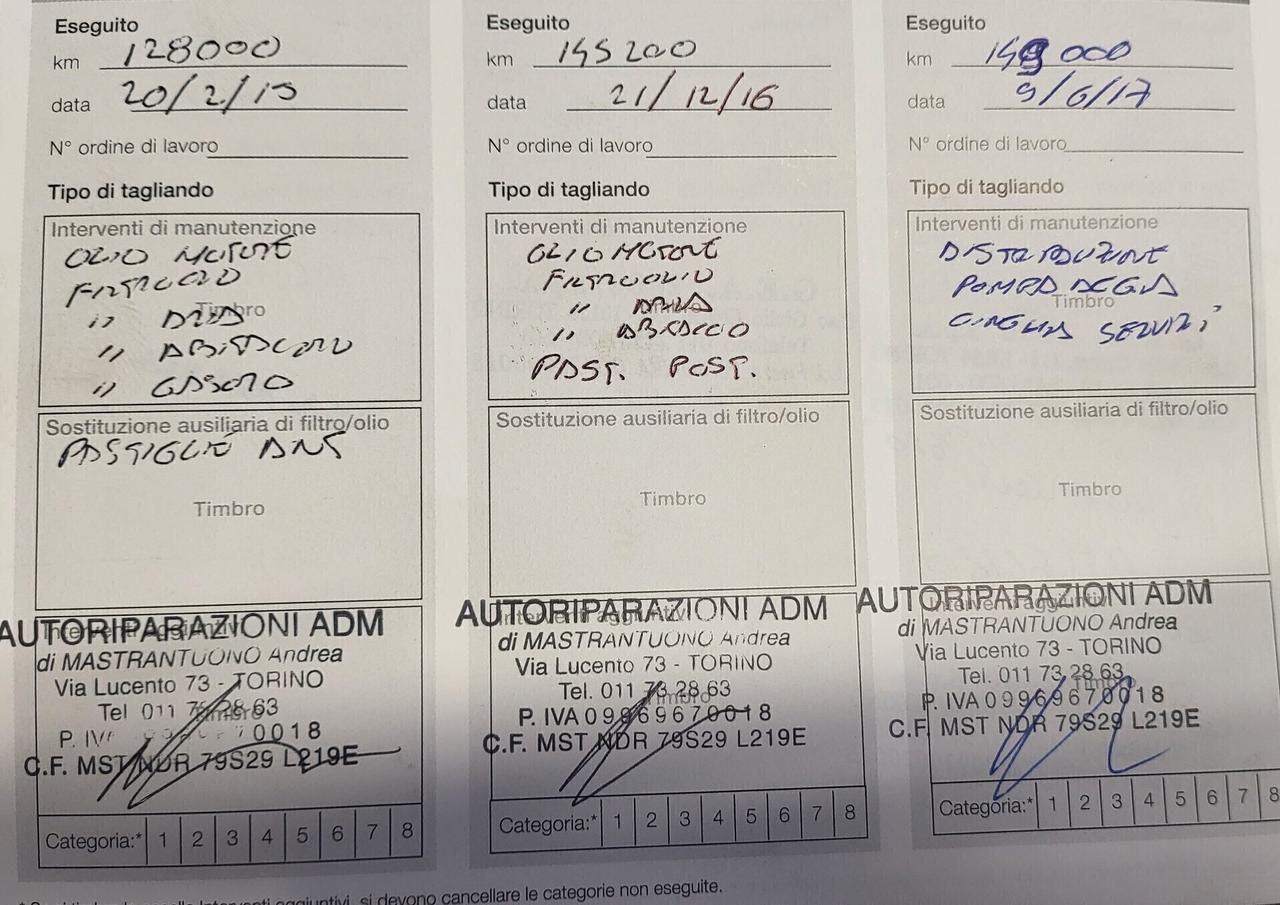 Eseguito
km 128000
data 20/2/15
N° ordine di lavoro
Tipo di tagliando
Interventi di manutenzione
OLIO MOTORE
FILTRO OLIO
Timbro
" ARIA
" ABITACOLO
" GASOLIO
Sostituzione ausiliaria di filtro/olio
PASTIGLIE ANT
Timbro
Interventi aggiuntivi
AUTORIPARAZIONI ADM
di MASTRANTUONO Andrea
Via Lucento 73 - TORINO
Tel 011 73 28 63
Timbro
P. IVA 0018
C.F. MST NDR 79S29 L219E
Categoria:* 1 2 3 4 5 6 7 8
Eseguito
km 145200
data 21/12/16
N° ordine di lavoro
Tipo di tagliando
Interventi di manutenzione
OLIO MOTORE
FILTRO OLIO
Timbro
" ARIA
" ABITACOLO
PAST. POST.
Sostituzione ausiliaria di filtro/olio
Timbro
Interventi aggiuntivi
AUTORIPARAZIONI ADM
di MASTRANTUONO Andrea
Via Lucento 73 - TORINO
Tel. 011 73 28 63
Timbro
P. IVA 09969670018
C.F. MST NDR 79S29 L219E
Categoria:* 1 2 3 4 5 6 7 8
Eseguito
km 149000
data 9/6/17
N° ordine di lavoro
Tipo di tagliando
Interventi di manutenzione
DISTRIBUZIONE
POMPA ACQUA
Timbro
CINGHIA SERVIZI
Sostituzione ausiliaria di filtro/olio
Timbro
Interventi aggiuntivi
AUTORIPARAZIONI ADM
di MASTRANTUONO Andrea
Via Lucento 73 - TORINO
Tel. 011 73 28 63
Timbro
P. IVA 09969670018
C.F. MST NDR 79S29 L219E
Categoria:* 1 2 3 4 5 6 7 8
aggiuntivi, si devono cancellare le categorie non eseguite.